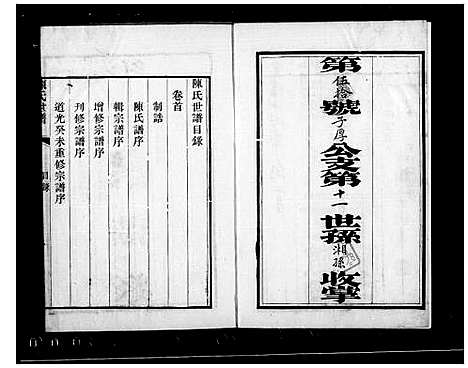 第伍拾號子厚公支第十一世孫湘孫收掌
陳氏世譜目錄
卷首
制誥
陳氏宗譜序
輯宗譜序
增修宗譜序
刊修宗譜序
道光癸未重修宗譜序
陳氏世譜
目錄